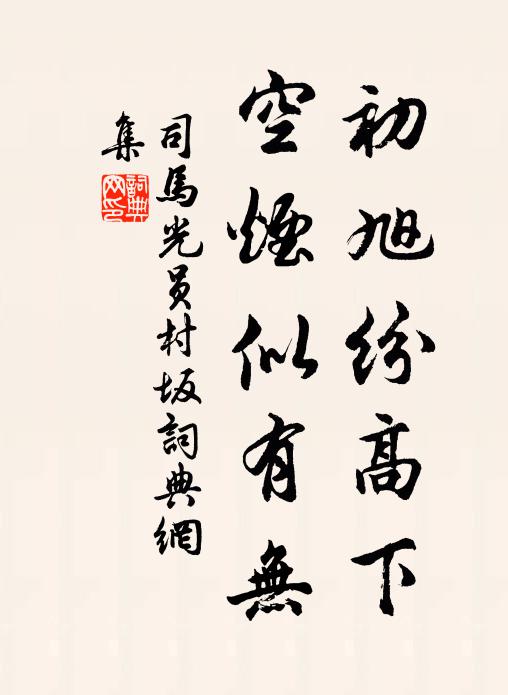 初旭紛高下
空煙似有無
司馬光員村坂詞典網
集
詞典
網印